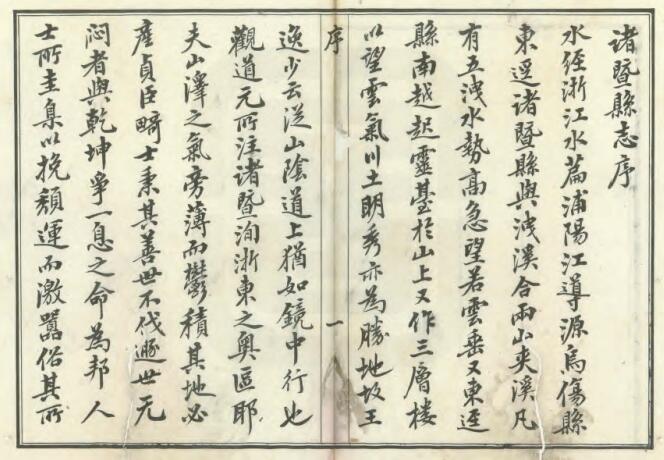 諸暨縣志序
水經浙江水篇浦陽江導源烏傷縣
東逕諸暨縣與洩溪合兩山夾溪凡
有五洩水勢高急望若雲垂又東逕
縣南越起靈臺於山上又作三層樓
以望雲氣川土明秀亦為勝地故王
序
一
逸少云從山陰道上猶如鏡中行也
觀道元所注諸暨洵浙東之奧區耶
夫山澤之氣旁薄而鬱積其地必
產貞臣畸士秉其善世不伐遯世无
悶者與乾坤爭一息之命為邦人
士所圭臬以挽頹運而激囂俗其所